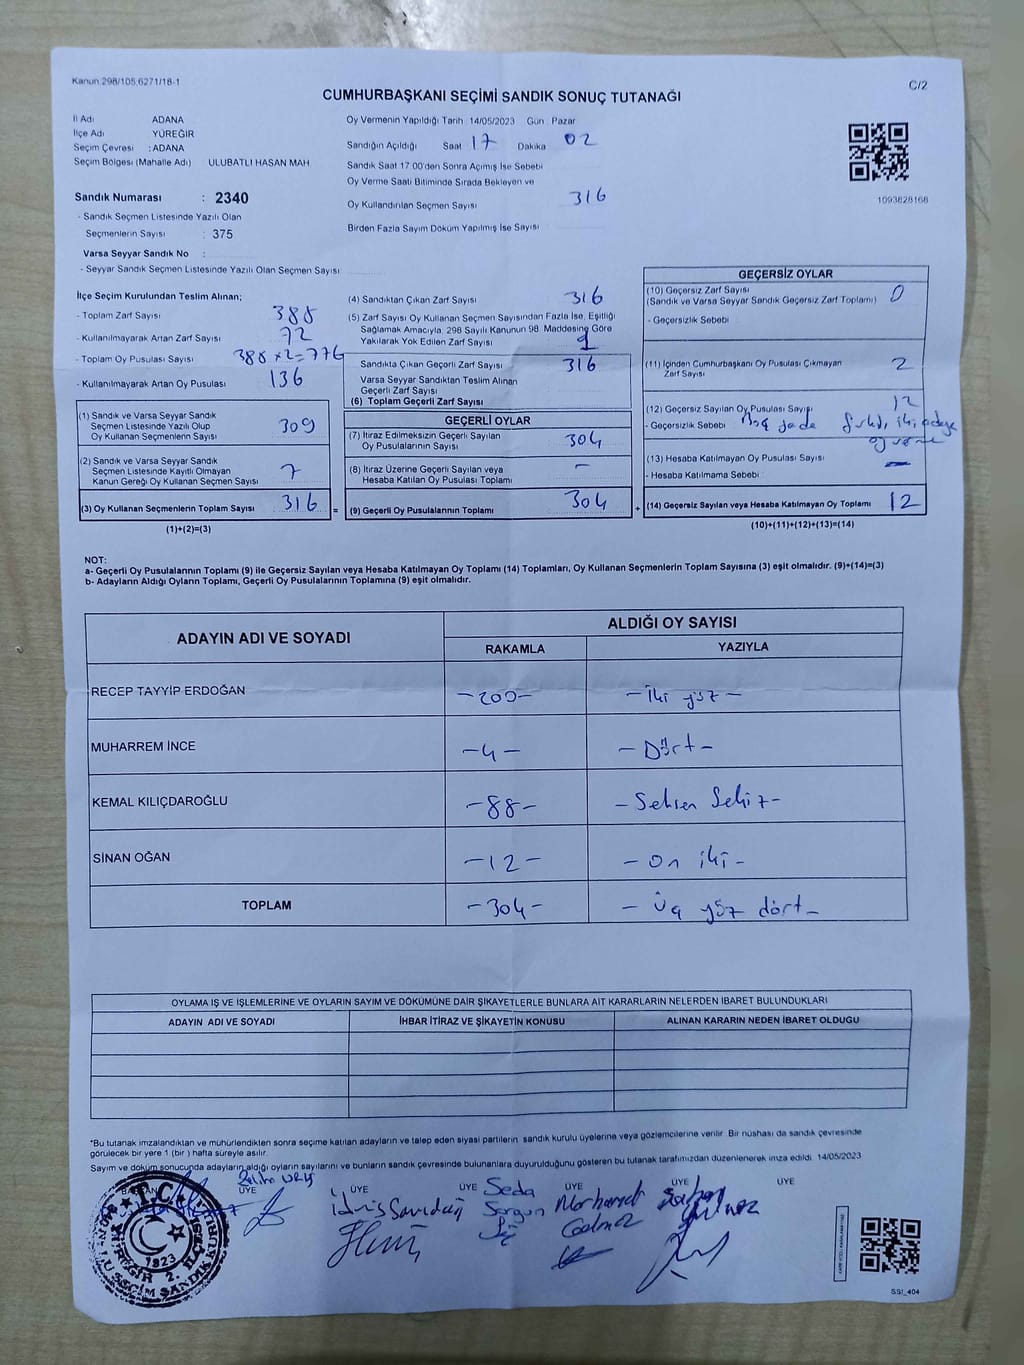 Kanun 298/105,6271/18-1
C/2
CUMHURBAŞKANI SEÇİMİ SANDIK SONUÇ TUTANAĞI
İl Adı ADANA
İlçe Adı YÜREĞİR
Seçim Çevresi : ADANA
Seçim Bölgesi (Mahalle Adı) ULUBATLI HASAN MAH
Sandık Numarası : 2340
- Sandık Seçmen Listesinde Yazılı Olan
Seçmenlerin Sayısı : 375
Varsa Seyyar Sandık No :
- Seyyar Sandık Seçmen Listesinde Yazılı Olan Seçmen Sayısı
Oy Vermenin Yapıldığı Tarih 14/05/2023 Gün Pazar
Sandığın Açıldığı Saat 17 Dakika 02
Sandık Saat 17.00'den Sonra Açılmış İse Sebebi
Oy Verme Saati Bitiminde Sırada Bekleyen ve
Oy Kullandırılan Seçmen Sayısı 316
Birden Fazla Sayım Döküm Yapılmış İse Sayısı
1093828168
İlçe Seçim Kurulundan Teslim Alınan;
- Toplam Zarf Sayısı 388
- Kullanılmayarak Artan Zarf Sayısı 72
- Toplam Oy Pusulası Sayısı 388 x 2 = 776
- Kullanılmayarak Artan Oy Pusulası 136
(1) Sandık ve Varsa Seyyar Sandık
Seçmen Listesinde Yazılı Olup
Oy Kullanan Seçmenlerin Sayısı 309
(2) Sandık ve Varsa Seyyar Sandık
Seçmen Listesinde Kayıtlı Olmayan
Kanun Gereği Oy Kullanan Seçmen Sayısı 7
(3) Oy Kullanan Seçmenlerin Toplam Sayısı 316 =
(1)+(2)=(3)
(4) Sandıktan Çıkan Zarf Sayısı 316
(5) Zarf Sayısı Oy Kullanan Seçmen Sayısından Fazla İse, Eşitliği
Sağlamak Amacıyla, 298 Sayılı Kanunun 98. Maddesine Göre
Yakılarak Yok Edilen Zarf Sayısı
Sandıkta Çıkan Geçerli Zarf Sayısı 316
Varsa Seyyar Sandıktan Teslim Alınan
Geçerli Zarf Sayısı
(6) Toplam Geçerli Zarf Sayısı
GEÇERLİ OYLAR
(7) İtiraz Edilmeksizin Geçerli Sayılan
Oy Pusulasının Sayısı 304
(8) İtiraz Üzerine Geçerli Sayılan veya
Hesaba Katılan Oy Pusulası Toplamı -
(9) Geçerli Oy Pusulalarının Toplamı 304 +
GEÇERSİZ OYLAR
(10) Geçersiz Zarf Sayısı
(Sandık ve Varsa Seyyar Sandık Geçersiz Zarf Toplamı) 0
- Geçersizlik Sebebi
(11) İçinden Cumhurbaşkanı Oy Pusulası Çıkmayan
Zarf Sayısı 2
(12) Geçersiz Sayılan Oy Pusulası Sayısı 12
- Geçersizlik Sebebi
(13) Hesaba Katılmayan Oy Pusulası Sayısı -
- Hesaba Katılmama Sebebi
(14) Geçersiz Sayılan veya Hesaba Katılmayan Oy Toplamı 12
(10)+(11)+(12)+(13)=(14)
NOT:
a- Geçerli Oy Pusulalarının Toplamı (9) ile Geçersiz Sayılan veya Hesaba Katılmayan Oy Toplamı (14) Toplamları, Oy Kullanan Seçmenlerin Toplam Sayısına (3) eşit olmalıdır. (9)+(14)=(3)
b- Adayların Aldığı Oyların Toplamı, Geçerli Oy Pusulalarının Toplamına (9) eşit olmalıdır.
ADAYIN ADI VE SOYADI
ALDIĞI OY SAYISI
RAKAMLA YAZIYLA
RECEP TAYYİP ERDOĞAN -200- -İki yüz-
MUHARREM İNCE -4- -Dört-
KEMAL KILIÇDAROĞLU -88- -Seksen Sekiz-
SİNAN OĞAN -12- -On iki-
TOPLAM -304- -Üç yüz dört-
OYLAMA İŞ VE İŞLEMLERİNE VE OYLARIN SAYIM VE DÖKÜMÜNE DAİR ŞİKAYETLERLE BUNLARA AİT KARARLARIN NELERDEN İBARET BULUNDUKLARI
ADAYIN ADI VE SOYADI İHBAR İTİRAZ VE ŞİKAYETİN KONUSU ALINAN KARARIN NEDEN İBARET OLDUĞU
*Bu tutanak imzalandıktan ve mühürlendikten sonra seçime katılan adayların ve talep eden siyasi partilerin sandık kurulu üyelerine veya gözlemcilerine verilir. Bir nüshası da sandık çevresinde
görülecek bir yere 1 (bir) hafta süreyle asılır.
Sayım ve döküm sonucunda adayların aldığı oyların sayılarını ve bunların sandık çevresinde bulunanlara duyurulduğunu gösteren bu tutanak tarafımızdan düzenlenerek imza edildi. 14/05/2023
ÜYE ÜYE ÜYE ÜYE ÜYE ÜYE
İdris Sarıdağ
Seda
T.C.
1923
SSİ_404